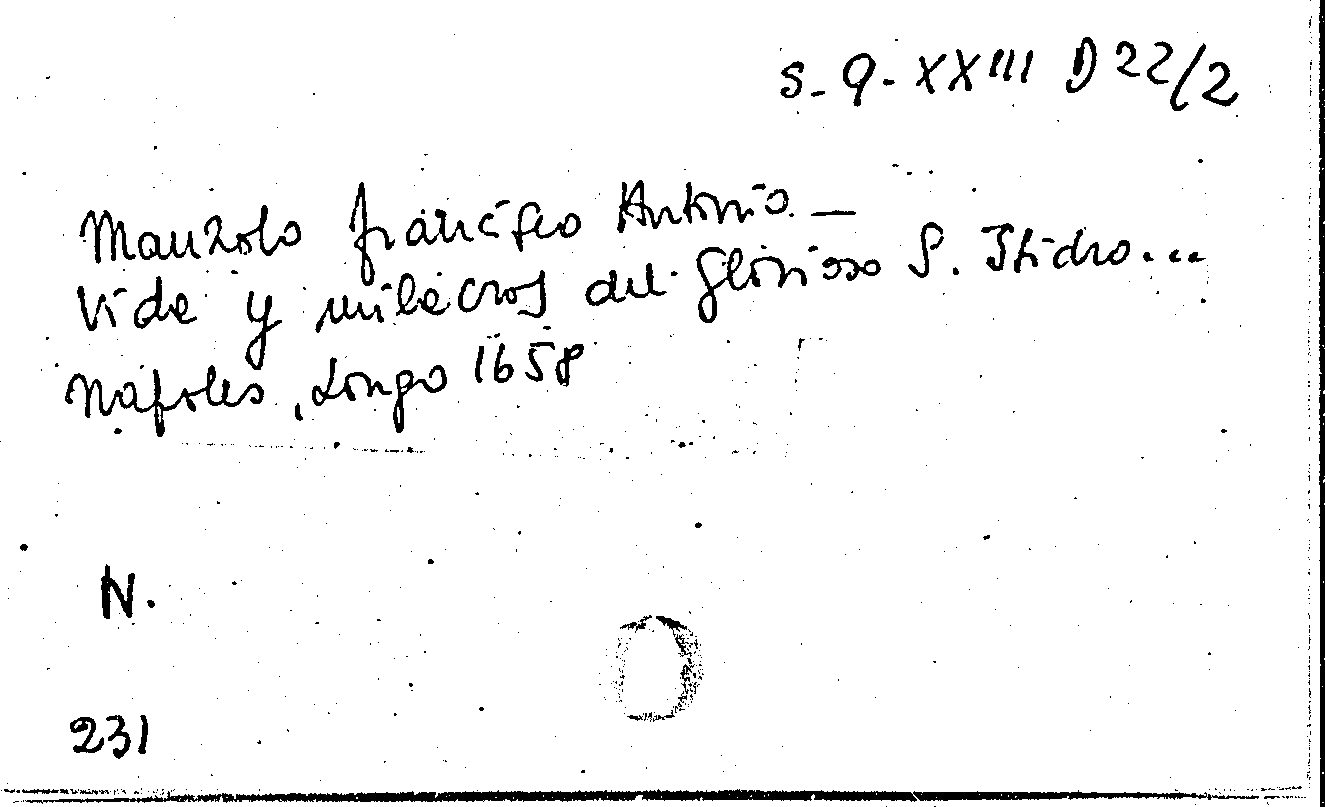 S-Q-XXIII D 22/2
Manzolo Francisco Antonio. —
Vida y milacros del Glorioso S. Isidro...
Napoles, Longo 1658
N.
231